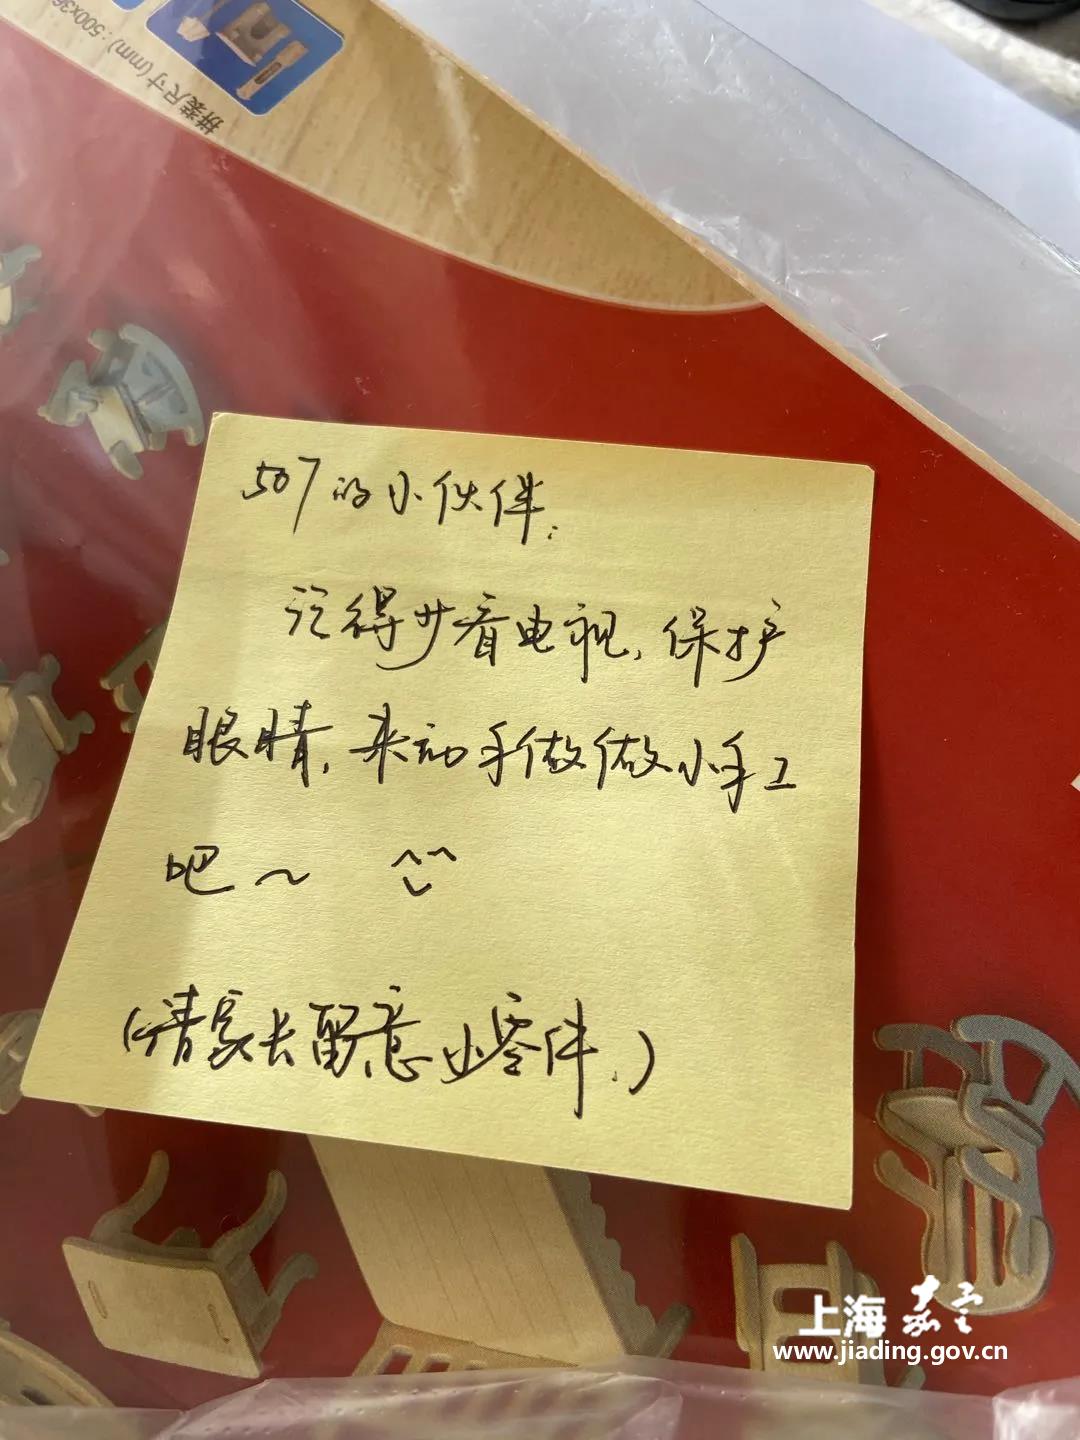 拼装尺寸(mm):500x36
507的小伙伴:
记得少看电视,保护
眼睛,来动手做做小手工
吧~ ^^
(请家长留意小零件.)
上海嘉定
www.jiading.gov.cn